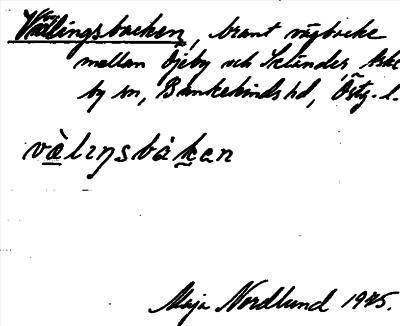 Vållingsbacken, brant vägbacke
mellan Öjeby och Askeby
by sn, Bankekinds hd, Östg. l.
vàlıŋsbákan
Maja Nordlund 1945.